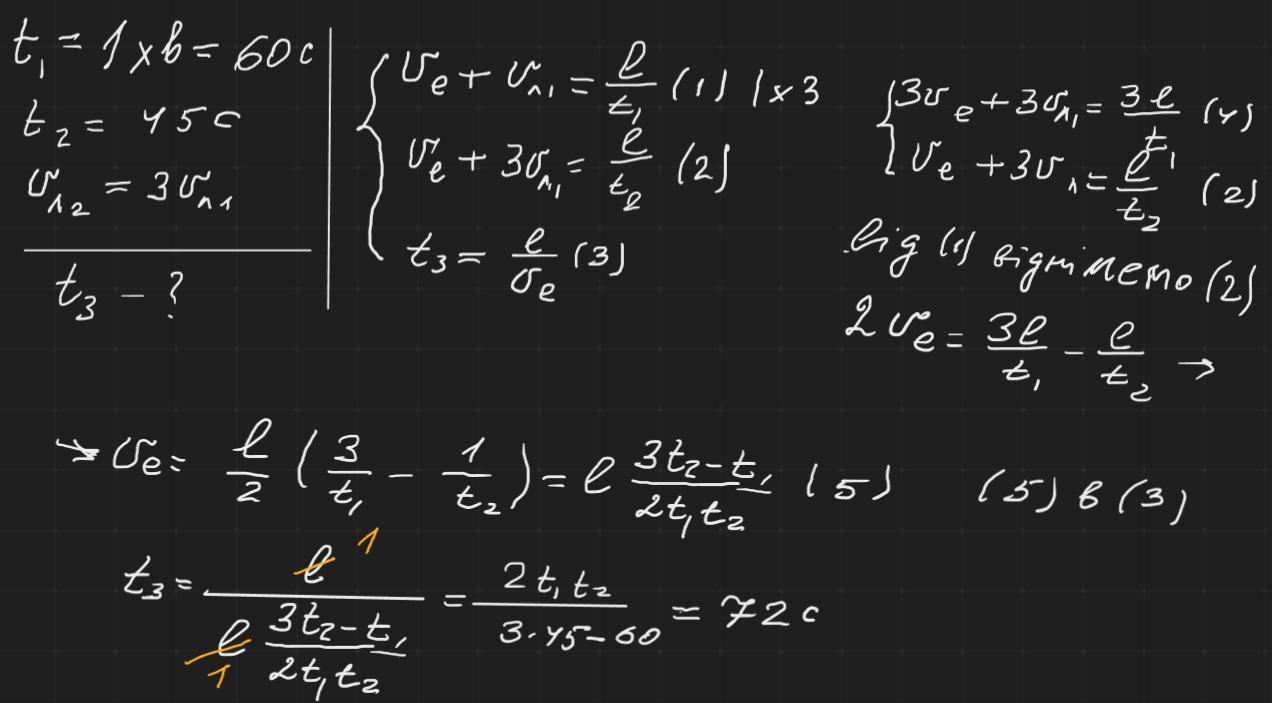 t₁ = 1 хв = 60 с
t₂ = 45 с
υₙ₂ = 3υₙ₁
t₃ - ?
υₑ + υₙ₁ = ℓ/t₁ (1) | x 3
υₑ + 3υₙ₁ = ℓ/t₂ (2)
t₃ = ℓ/υₑ (3)
3υₑ + 3υₙ₁ = 3ℓ/t₁ (4)
υₑ + 3υₙ = ℓ/t₂ (2)
від (1) віднімемо (2)
2υₑ = 3ℓ/t₁ - ℓ/t₂ →
→ υₑ = ℓ/2 (3/t₁ - 1/t₂) = ℓ (3t₂ - t₁)/(2t₁t₂) (5) (5) в (3)
t₃ = ℓ 1 / (ℓ 1 (3t₂ - t₁)/(2t₁t₂)) = 2t₁t₂/(3·45-60) = 72 с